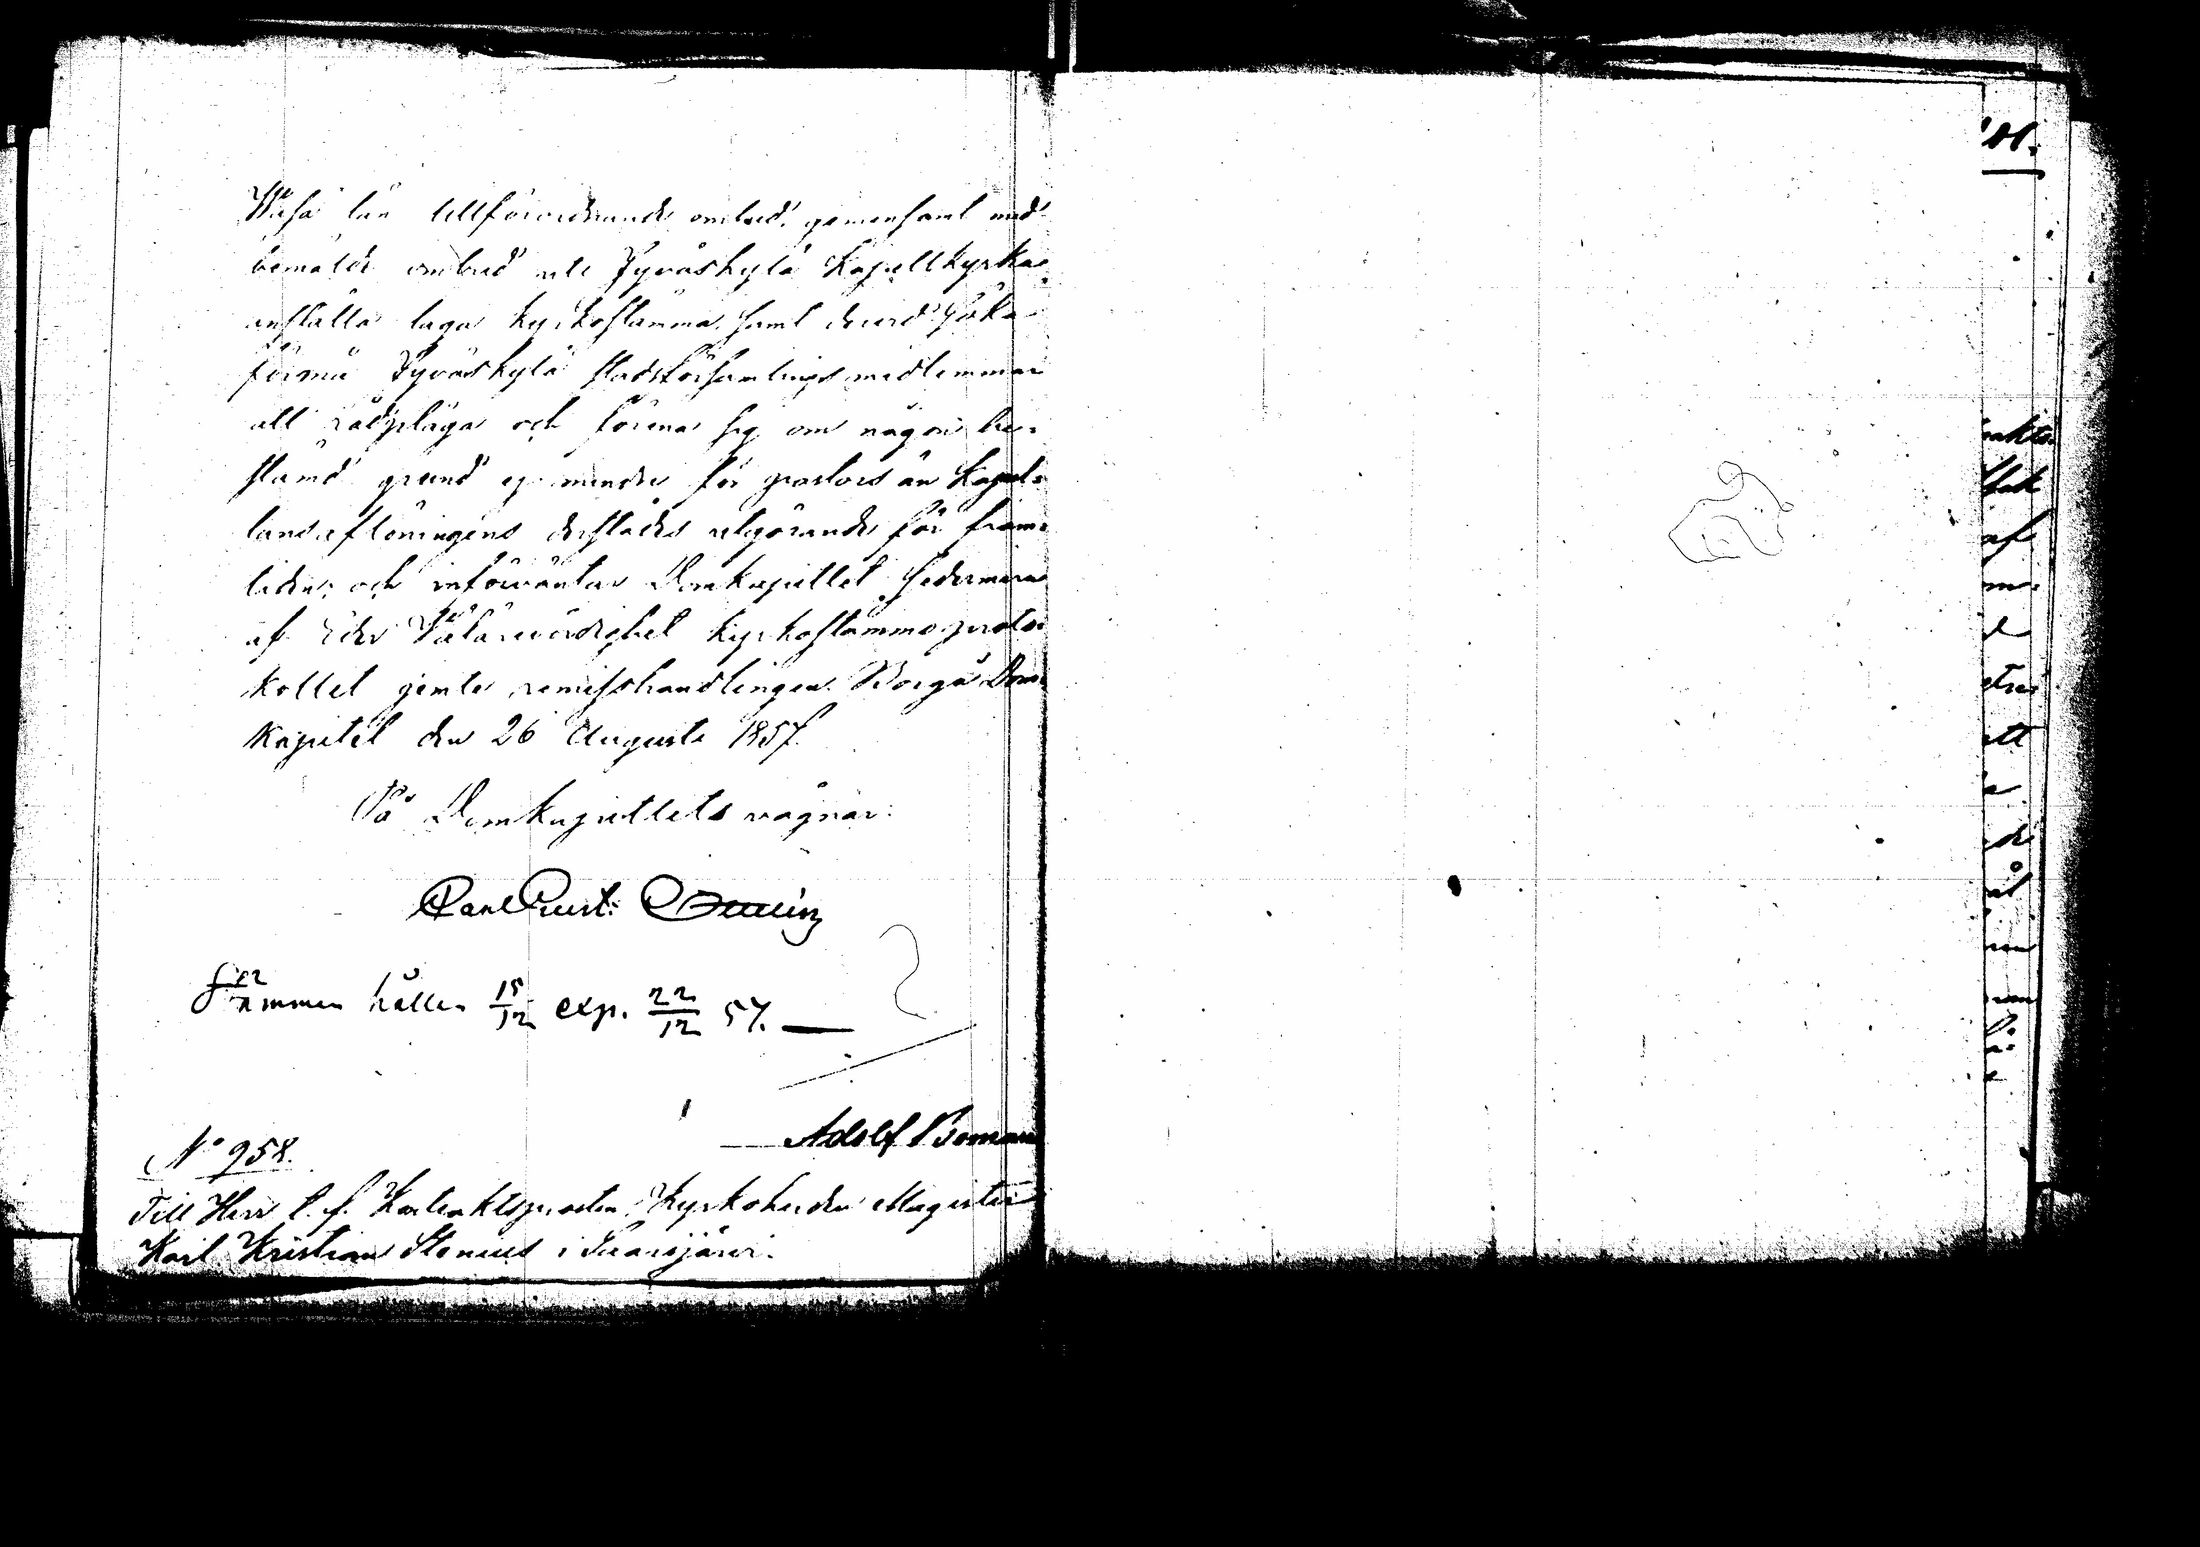 Wasa län tillförordnande ombud, gemensamt med
bemälde ombud uti Jyväskylä Kapellkyrka
anställa laga kyrkostämma samt derwid söka
förmå Jyväskylä stadsförsamlings medlemmar
att rådpläga och förena sig om någon be-
stämd grund ej mindre för pastors än Kapel-
lansaflöningens derstädes utgörande för fram-
tiden; och införväntar Domkapitlet sedermera
af Eder Välärevördighet kyrkostämmoproto-
kollet jemte remisshandlingen. Borgå Dom-
kapitel den 26 Augusti 1857.
På Domkapitlets vägnar:
Carl Gust:
Stämman hållen 15/12 exp. 22/12 57.
Adolf Boman
N° 958.
Till Herr t. f. Kontraktsprosten, Kyrkoherden Magister
Karl Kristian Stenius i Saarijärvi.
af
ett